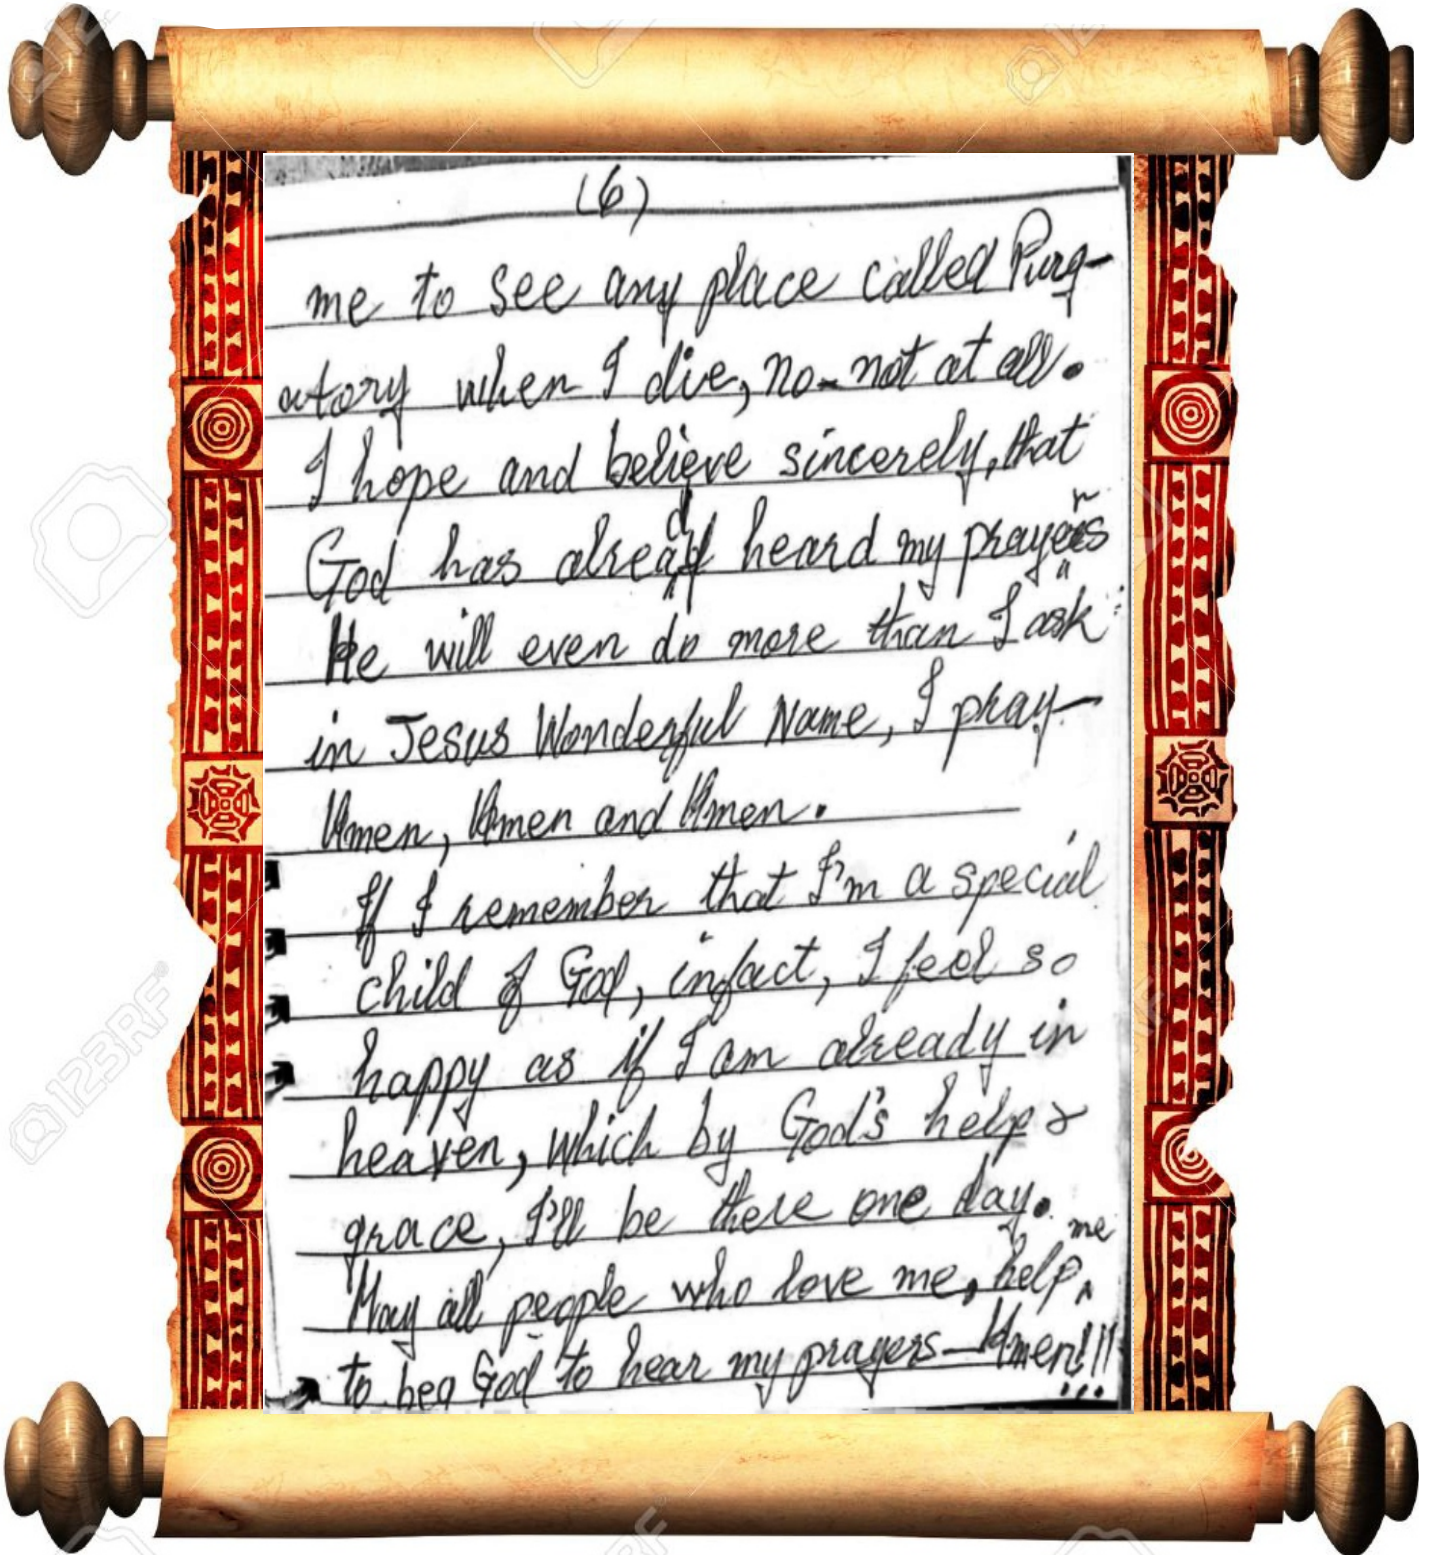 (6)
me to see any place called Purg-
atory when I die, no - not at all.
I hope and believe sincerely, that
God has already heard my prayers
He will even do more than I ask
in Jesus Wonderful Name, I pray-
Amen, Amen and Amen.
If I remember that I'm a special
child of God, infact, I feel so
happy as if I am already in
heaven, which by God's help &
grace, I'll be there one day.
May all people who love me, help me
to beg God to hear my prayers - Amen!!!
123RF